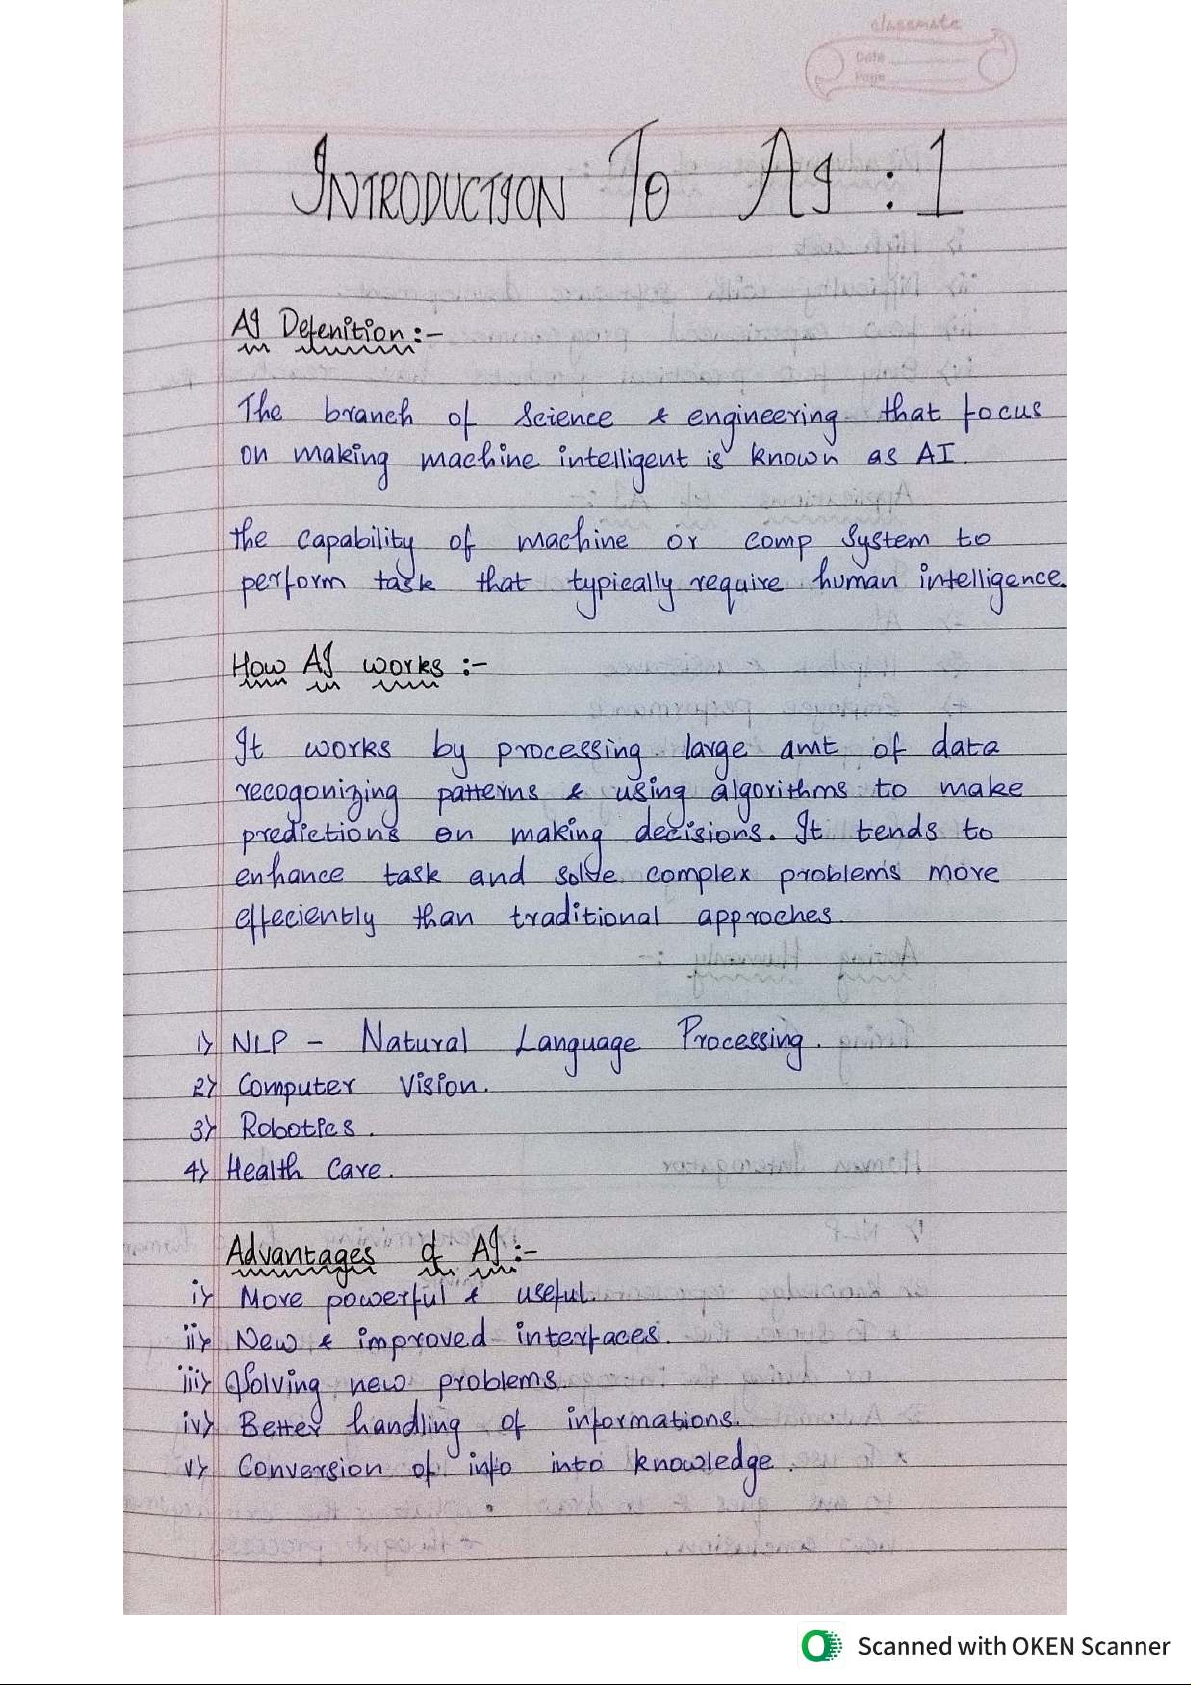 classmate
Date
Page
INTRODUCTION TO AI : 1
AI Defenition :-
The branch of Science & engineering that focus
on making machine intelligent is known as AI.
the capability of machine or comp System to
perform task that typically require human intelligence.
How AI works :-
It works by processing large amt of data
recogonizing patterns & using algorithms to make
predictions on making decisions. It tends to
enhance task and solve complex problems more
effeciently than traditional approches.
1) NLP - Natural Language Processing.
2) Computer Vision.
3) Robotics.
4) Health Care.
Advantages of AI :-
i) More powerful & useful.
ii) New & improved interfaces.
iii) Solving new problems.
iv) Better handling of informations.
v) Conversion of info into knowledge.
Scanned with OKEN Scanner